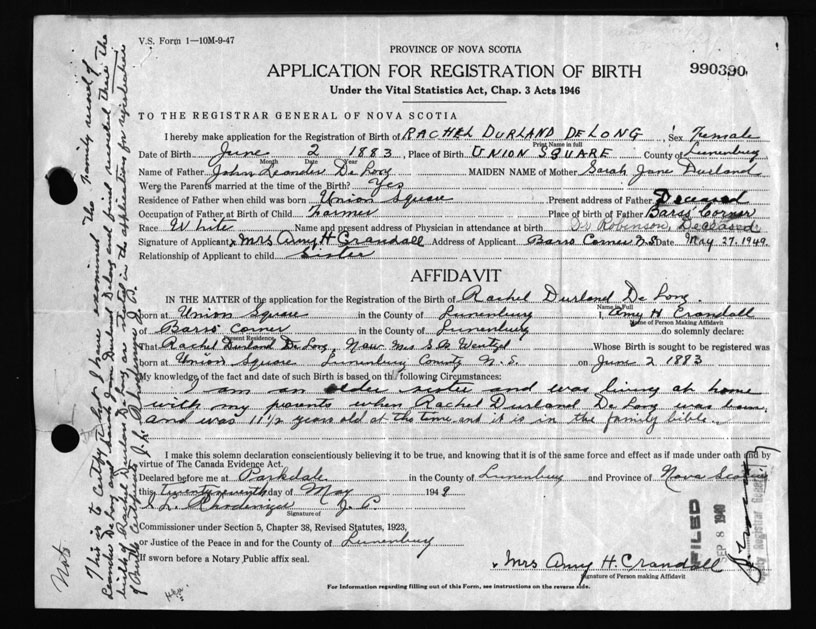 V.S. Form 1—10M-9-47
PROVINCE OF NOVA SCOTIA
APPLICATION FOR REGISTRATION OF BIRTH
990390
Under the Vital Statistics Act, Chap. 3 Acts 1946
TO THE REGISTRAR GENERAL OF NOVA SCOTIA
I hereby make application for the Registration of Birth of RACHEL DURLAND DELONG, Sex Female
Print Name in full
Date of Birth June 2 1883, Place of Birth UNION SQUARE County of Lunenburg
Month Date Year
Name of Father John Leander De Long MAIDEN NAME of Mother Sarah Jane Durland
Were the Parents married at the time of the Birth? Yes
Residence of Father when child was born Union Square Present address of Father Deceased
Occupation of Father at Birth of Child Farmer Place of birth of Father Barss Corner
Race White Name and present address of Physician in attendance at birth Dr Robinson, Deceased
Signature of Applicant Mrs Amy H Crandall Address of Applicant Barss Corner N.S. Date May 27, 1949
Relationship of Applicant to child Sister
AFFIDAVIT
IN THE MATTER of the application for the Registration of the Birth of Rachel Durland De Long.
Name in Full
born at Union Square in the County of Lunenburg I, Amy H Crandall
Name of Person Making Affidavit
of Barss Corner in the County of Lunenburg do solemnly declare:
Present Residence
That Rachel Durland De Long, Now Mrs S A Wentzel Whose Birth is sought to be registered was
born at Union Square Lunenburg County N.S. on June 2 1883
My knowledge of the fact and date of such Birth is based on the following Circumstances:
I am an older sister and was living at home
with my parents when Rachel Durland De Long was born
and was 11½ years old at the time and it is in the family bible.
I make this solemn declaration conscientiously believing it to be true, and knowing that it is of the same force and effect as if made under oath and by
virtue of The Canada Evidence Act.
Declared before me at Parkdale in the County of Lunenburg and Province of Nova Scotia
this twenty seventh day of May 1949
S. L. Rhodenizer J. P.
Signature of
Commissioner under Section 5, Chapter 38, Revised Statutes, 1923,
or Justice of the Peace in and for the County of Lunenburg
If sworn before a Notary Public affix seal.
Mrs Amy H. Crandall
Signature of Person making Affidavit
For Information regarding filling out of this Form, see instructions on the reverse side.
FILED
SEP 8 1949
Registrar General
This is to certify that I have examined the family record of
Leander De Long and Sarah Jane Durland Delong and find recorded there the
birth of Rachel Durland De Long as stated in the application for registration
of Birth Certificate. S. L. Rhodenizer J. P.